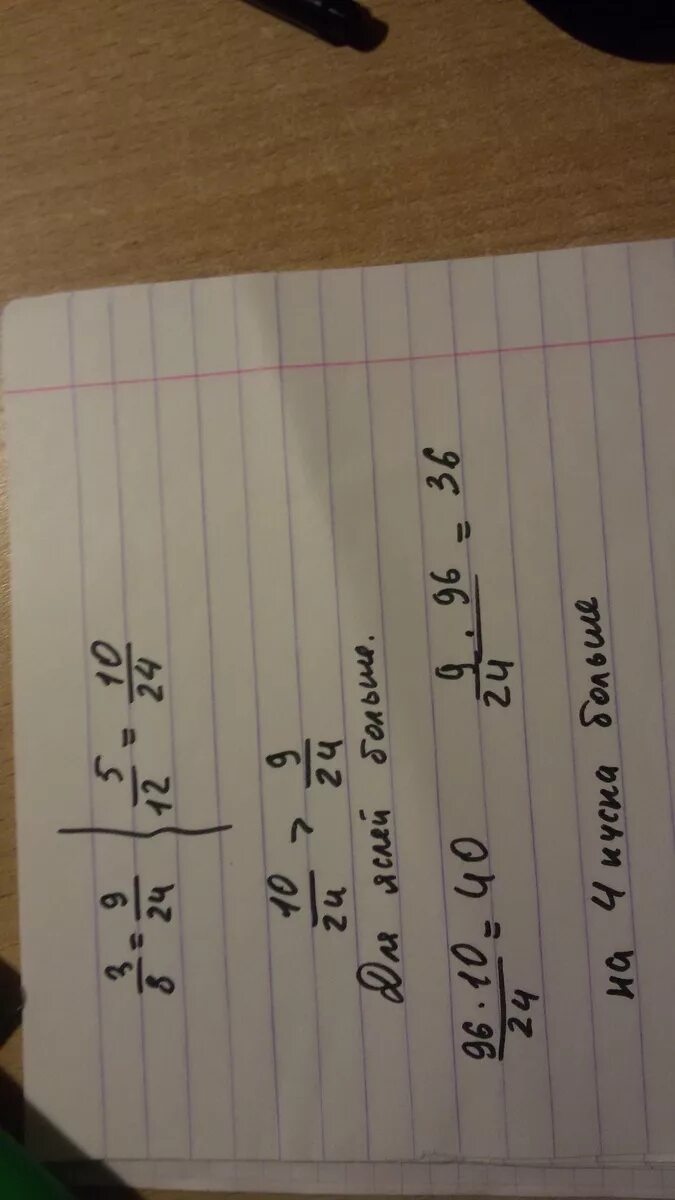 3/8 = 9/24 } 5/12 = 10/24
10/24 > 9/24
Для яслей больше.
96 · 10/24 = 40 9/24 · 96 = 36
на 4 куска больше